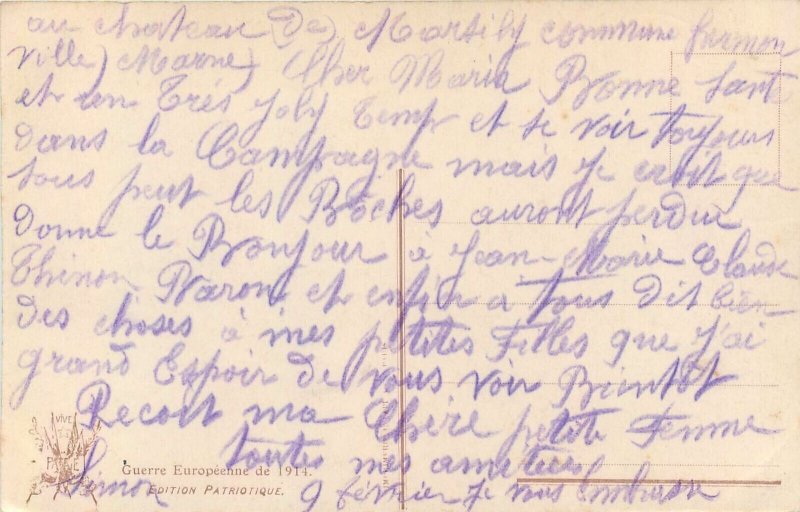 au chateau de) Marsily commune furmon
ville) Marne) Cher Maria Bonne Santé
et un Trés Joly Temp et te voir toujours
dans la Campagne mais je croit que
sous peut les Boches auront perdue
donne le Bonjour à Jean-Marie Claude
Thinon Baron et enfin a Tous dit bien
des choses à mes petites Filles que j'ai
grand Espoir de vous voir Bientôt
Recoit ma Chère petite Femme
toutes mes amitiees
Simon 9 février je vous embrasse
VIVE
Guerre Européenne de 1914.
EDITION PATRIOTIQUE.